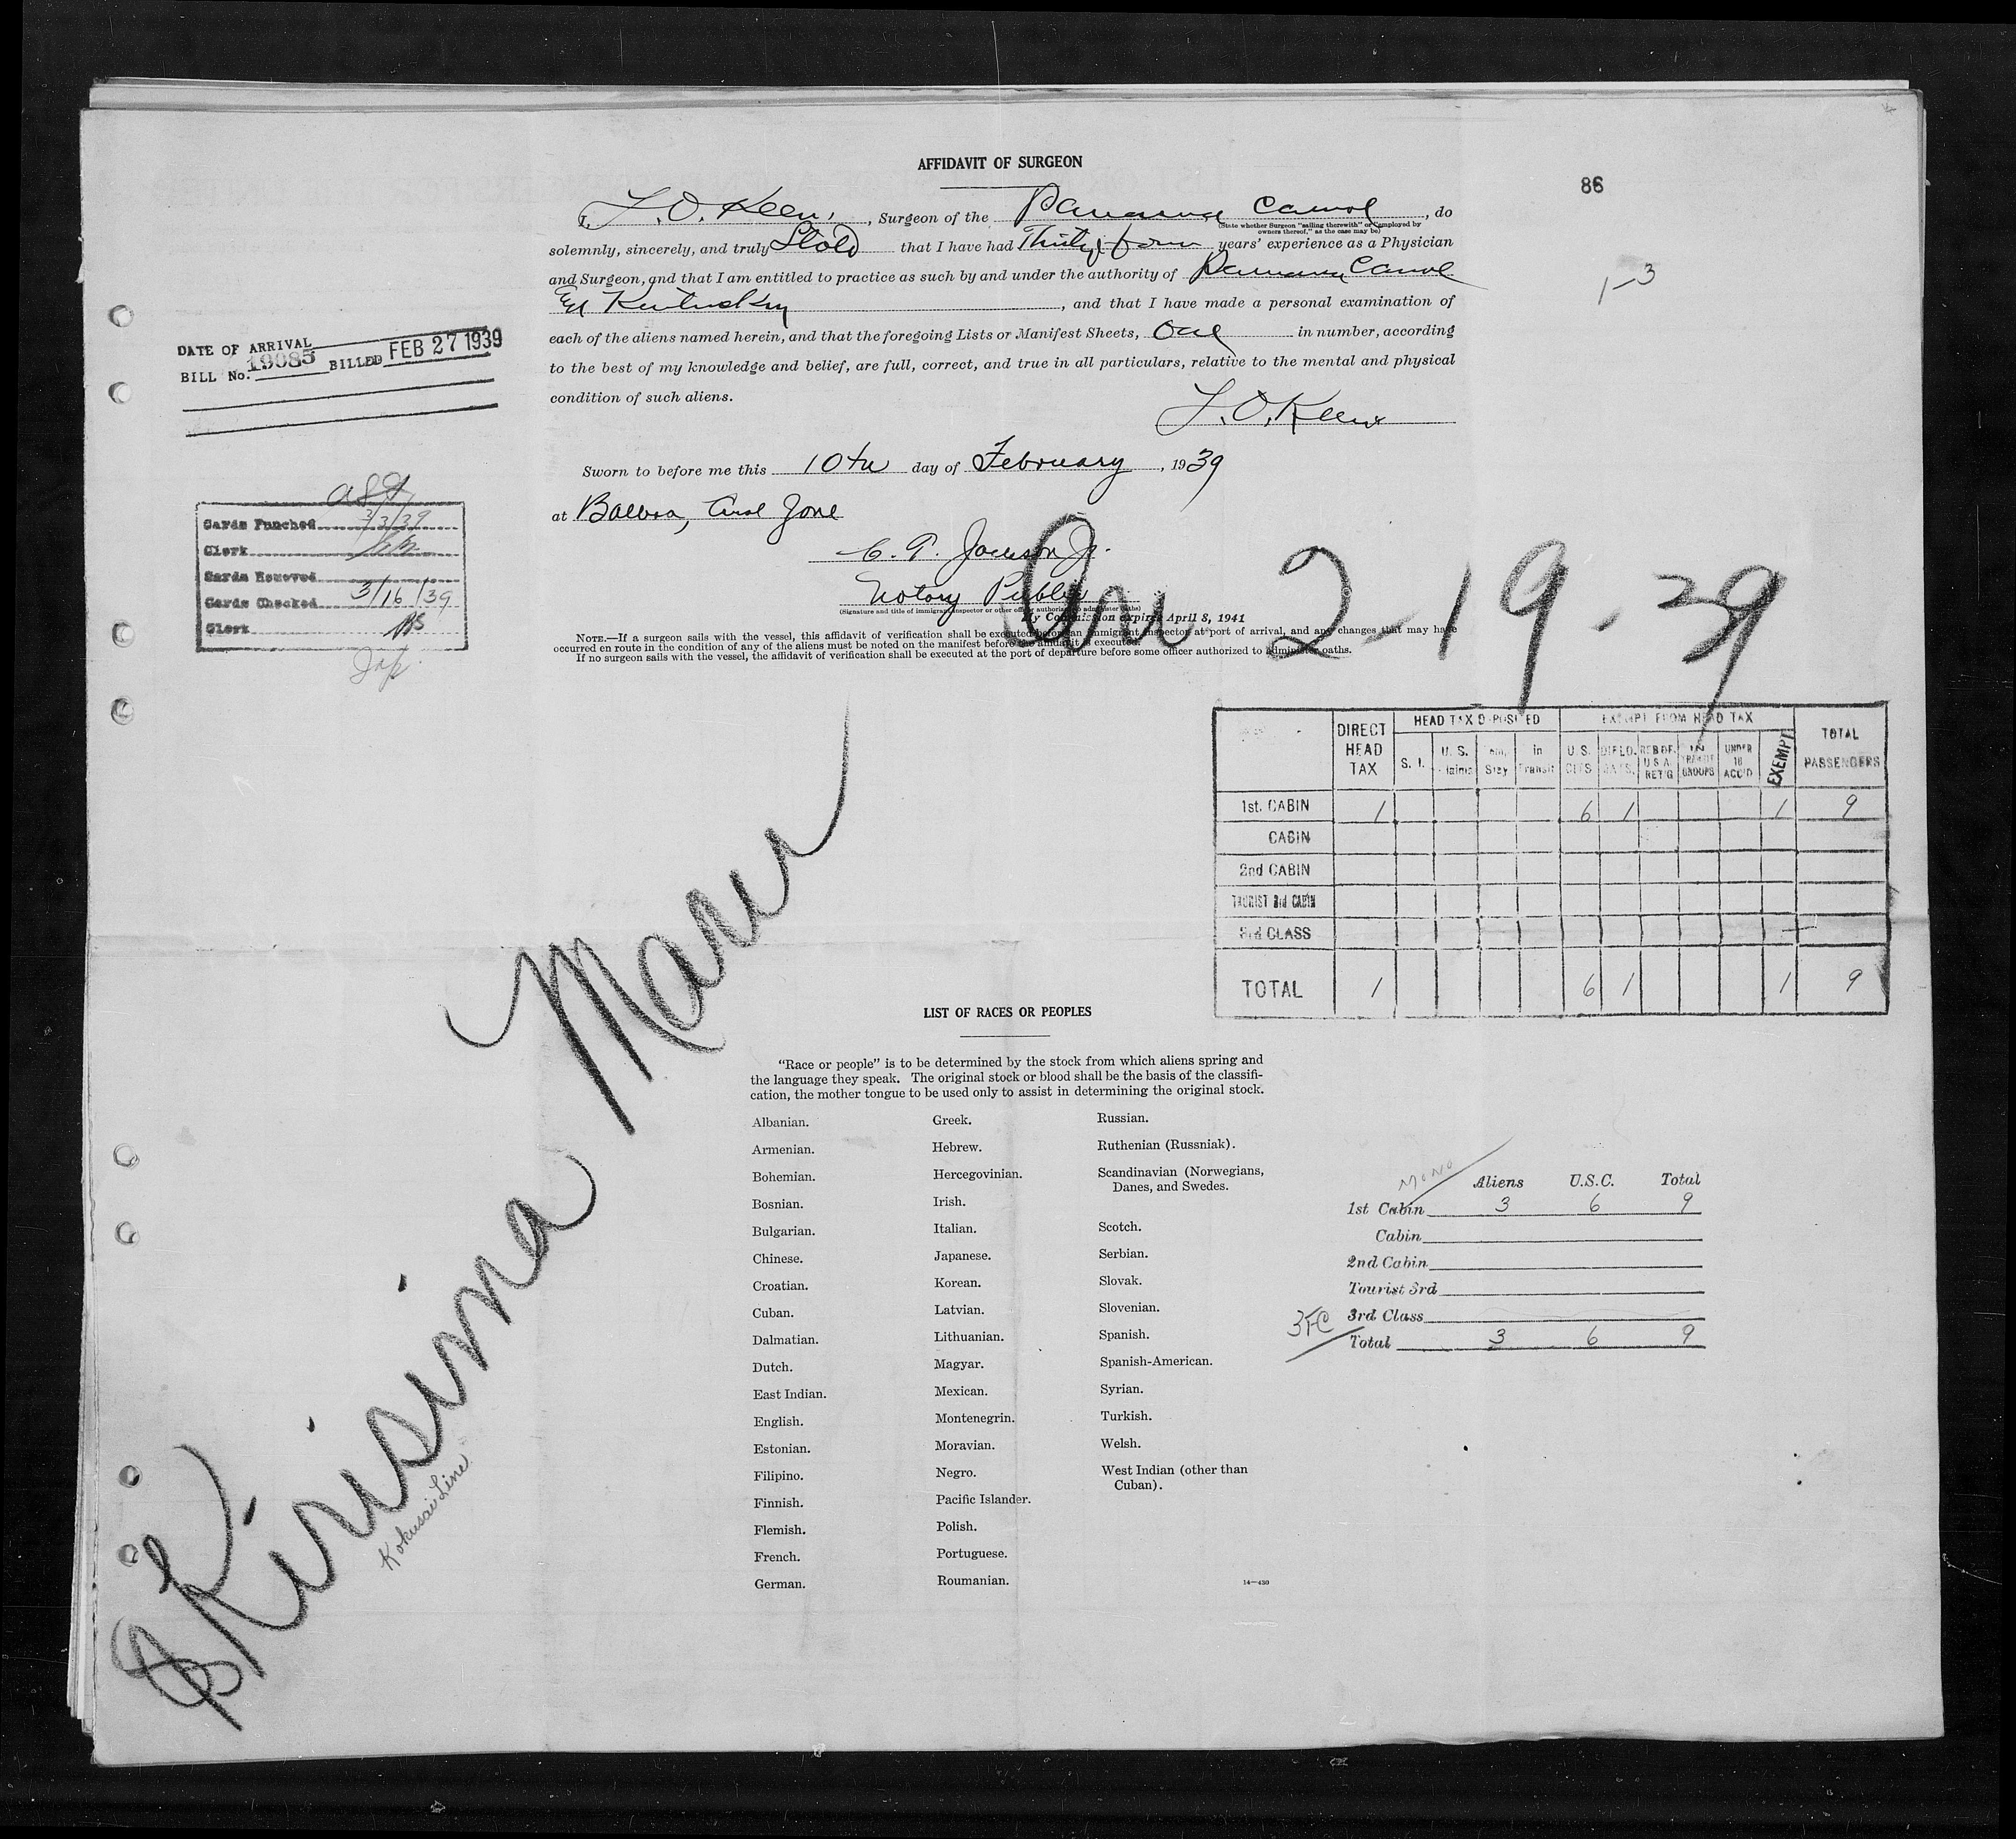 AFFIDAVIT OF SURGEON
86
I, L. O. Keen, , Surgeon of the Panama Canal , do
(State whether Surgeon "sailing therewith" or "employed by
owners thereof," as the case may be)
solemnly, sincerely, and truly that I have had Thirty four years' experience as a Physician
and Surgeon, and that I am entitled to practice as such by and under the authority of Panama Canal
Kentucky , and that I have made a personal examination of
each of the aliens named herein, and that the foregoing Lists or Manifest Sheets, One in number, according
to the best of my knowledge and belief, are full, correct, and true in all particulars, relative to the mental and physical
condition of such aliens.
L. O. Keen
1-3
DATE OF ARRIVAL
BILL No. 19085 BILLED FEB 27 1939
Sworn to before me this 10th day of February , 1939
at Balboa, Canal Zone
C. T. Jackson Jr.
Notary Public
(Signature and title of immigrant inspector or other officer authorized to administer oaths)
My Commission expires April 8, 1941
Cards Punched 3/3/39
Clerk
Cards Removed
Cards Checked 3/16/39
Clerk
Arr 2-19-39
NOTE.—If a surgeon sails with the vessel, this affidavit of verification shall be executed before an immigrant inspector at port of arrival, and any changes that may have
occurred en route in the condition of any of the aliens must be noted on the manifest before the affidavit is executed.
If no surgeon sails with the vessel, the affidavit of verification shall be executed at the port of departure before some officer authorized to administer oaths.
DIRECT HEAD TAX HEAD TAX DEPOSITED EXEMPT FROM HEAD TAX TOTAL PASSENGERS
S. I. U. S. Claims Tem. Stay in Transit U. S. CITS DIPLO. MATS. RES OF. U S A. RET'G IN TRANSIT GROUPS UNDER 16 ACC'D EXEMPT
1st. CABIN 1 6 1 1 9
CABIN
2nd CABIN
TOURIST 3rd CABIN
3rd CLASS
TOTAL 1 6 1 1 9
Kirisima Maru
Kokusai Line
LIST OF RACES OR PEOPLES
"Race or people" is to be determined by the stock from which aliens spring and
the language they speak. The original stock or blood shall be the basis of the classifi-
cation, the mother tongue to be used only to assist in determining the original stock.
Albanian.
Armenian.
Bohemian.
Bosnian.
Bulgarian.
Chinese.
Croatian.
Cuban.
Dalmatian.
Dutch.
East Indian.
English.
Estonian.
Filipino.
Finnish.
Flemish.
French.
German.
Greek.
Hebrew.
Hercegovinian.
Irish.
Italian.
Japanese.
Korean.
Latvian.
Lithuanian.
Magyar.
Mexican.
Montenegrin.
Moravian.
Negro.
Pacific Islander.
Polish.
Portuguese.
Roumanian.
Russian.
Ruthenian (Russniak).
Scandinavian (Norwegians,
Danes, and Swedes.
Scotch.
Serbian.
Slovak.
Slovenian.
Spanish.
Spanish-American.
Syrian.
Turkish.
Welsh.
West Indian (other than
Cuban).
14—430
Aliens U.S.C. Total
1st Cabin 3 6 9
Cabin
2nd Cabin
Tourist 3rd
3rd Class
3FC
Total 3 6 9